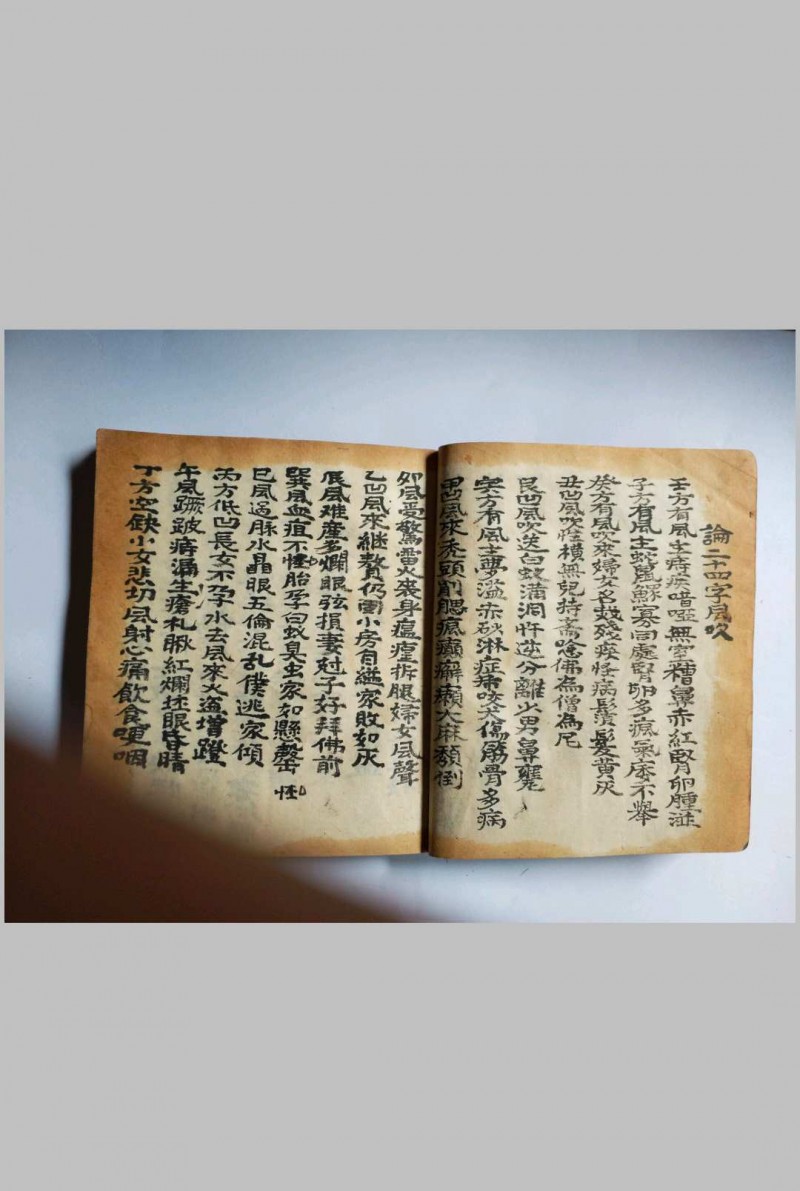 論二十四字風吹
壬方有風主痔疾喑啞無空糟鼻赤紅腎卵腫
子方有風主蛇鼠鰥寡同處腎卵多疝氣痿不舉
癸方有風吹來婦女名殘疾怪病鬚髮黃灰
丑凹風吹性橫無兒持齋唸佛為僧為尼
艮凹風吹送白蚁滿洞忤逆分離少男鼻齆
寅方有風主夢溢赤砂淋症嗽傷筋骨多病
甲凹風來禿頭削腮瘋癲癬癩大麻頹倒
卯風受驚雷火喪身瘟𤺥折腿婦女風聲
乙凹風來繼贅仍小房自縊家敗如灰
辰風难產多爛眼弦損妻尅子好拜佛前
巽風血疽不怪胎孕白蚁臭虫家如懸罄
怪
巳風過脉水晶眼五倫混乱僕逃家傾
丙方低凹長女不孕水去風來火盗增蹬
午風蹶跛痔漏生瘡札瞅紅爛坯眼昏睛
丁方空缺小女悲切風射心痛飲食哽咽